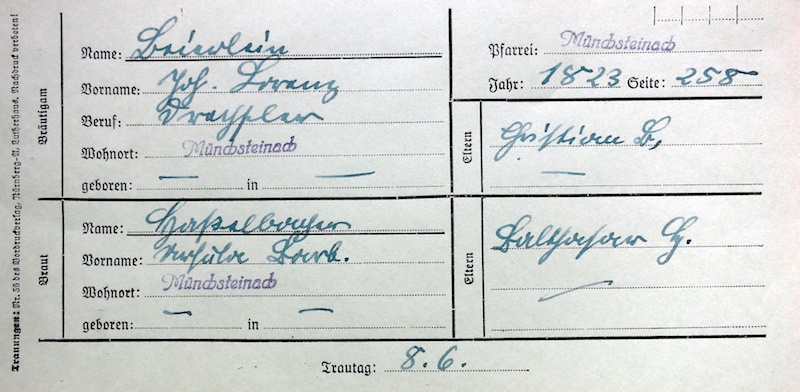 Trauungen: Nr. 56 des Vordruckverlag, Nürnberg-A, Lutherhaus. Nachdruck verboten!
Bräutigam
Name: Beierlein
Vorname: Joh. Lorenz
Beruf: Drechsler
Wohnort: Münchsteinach
geboren: — in —
Pfarrei: Münchsteinach
Jahr: 1823 Seite: 258
Eltern
Christian B.
—
Braut
Name: Haßelbacher
Vorname: Ursula Barb.
Wohnort: Münchsteinach
geboren: — in —
Eltern
Balthasar H.
—
Trautag: 8. 6.